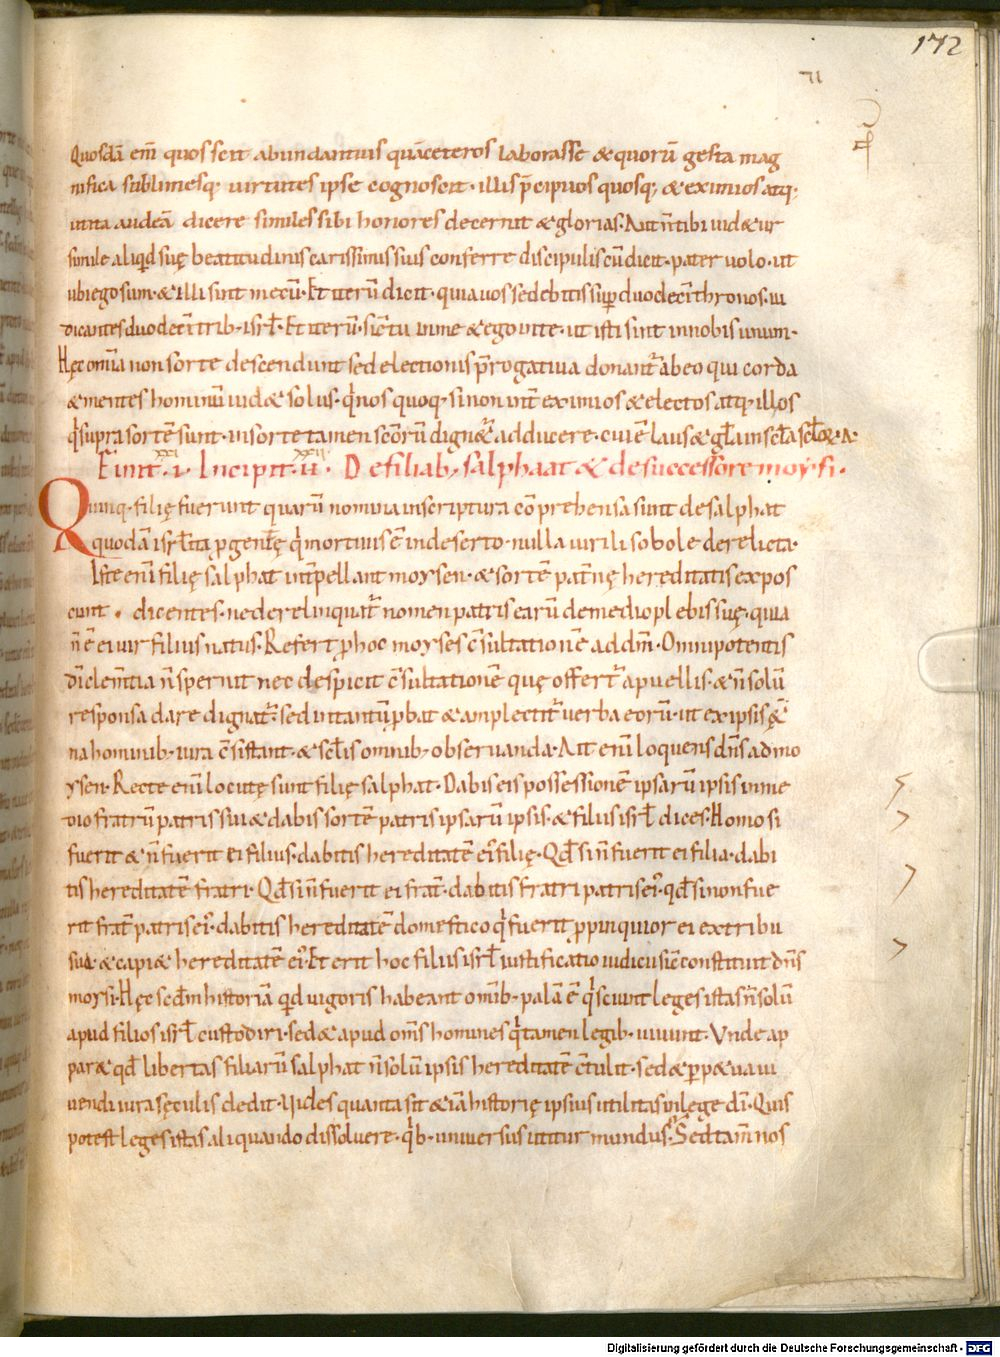 172
71
Quosdā em̄ quos scit abundantius quā ceteros laborasse & quorū gesta mag
nifica sublimesq; uirtutes ipse cognoscit· illis p̄cipuos quosq; & eximios atq;
uita audeā dicere similes sibi honores decernit & glorias· Aut n̄ tibi uid&ur
simile aliqd suę beatitudinis carissimis suis conferre discipulis cū dicit· pater uolo· ut
ubi ego sum· & illi sint mecū· Et iterū dicit· quia uos sedebitis sup duodecī thronos· iu
dicantes duodecī trib; isrl̄· Et iterū· sic̄ tu in me & ego in te· ut isti sint in nobis unum·
Hęc omīa non sorte descendunt sed electionis p̄rogatiua donant̄ ab eo qui corda
& mentes hominū uid& solus· q̄ nos quoq; si non int̄ eximios & electos atq; illos
q̄ supra sortē sunt· in sorte tamen scōrū dign&̄ adducere· cui ē laus & gl̄a in scl̄a scl̄o&· A·
Finit· xxi· Incipit· xxii· De filiab; salphaat & de successore moysi·
Quinq; filię fuerunt quarū nomina in scriptura cōprehensa sunt de salphat
quodā isrl̄ita pgente q̄ mortuus ē in deserto· nulla uirili sobole derelicta·
Iste enī filię salphat int̄pellant moysen· & sortē pat̄nę hereditatis expos
cunt· dicentes· ne derelinquat̄ nomen patris earū de medio plebis suę· quia
n̄ ē ei uir filius natus· Refert p hoc moyses c̄sultationē ad dm̄· Omnipotentis
dī clem̄tia n̄ spernit nec despicit c̄sultationē quę offert̄ a puellis· & n̄ solū
responsa dare dignat̄· sed intantū pbat & amplectit̄ uerba eorū· ut ex ipsis &̄
na hominib; iura c̄sistant· & scl̄is omnib; obseruanda· Ait enī loquens dn̄s ad mo
ysen· Recte enī locutę sunt filię salphat· Dabis eis possessionē ipsarū ipsis in me
dio fratrū patris sui & dabis sortē patris ipsarū ipsis· & filiis isrl̄ dices· Homo si
fuerit & n̄ fuerit ei filius· dabitis hereditatē ei filię· Qd̄ si n̄ fuerit ei filia· dabi
tis hereditatē fratri· Qd̄ si n̄ fuerit ei frat̄· dabitis fratri patris ei· qd̄ si non fue
rit frat̄ patris ei· dabitis hereditatē domestico q̄ fuerit ppinquior ei ex tribu
sua· & capi& hereditatē ei· Et erit hoc filiis isrl̄ iustificatio iudicii sic̄ constituit dn̄s
moysi· Hęc scd̄m historiā qd uigoris habeant omīb; palā ē q̄ sciunt leges istas n̄ solū
apud filios isrl̄ custodiri· sed & apud om̄s homines q̄ tamen legib; uiuunt· Vnde ap
par& qd̄ libertas filiarū salphat n̄ solū ipsis hereditatē c̄tulit· sed & pp&ua ui
uendi iura sęculis dedit· Uides quanta sit & iā historię ipsius utilitas in lęge dī· Quis
potest leges istas aliquando dissoluere· q̄b; uniuersus utitur mundus· Sed tam̄ nos
Digitalisierung gefördert durch die Deutsche Forschungsgemeinschaft - DFG